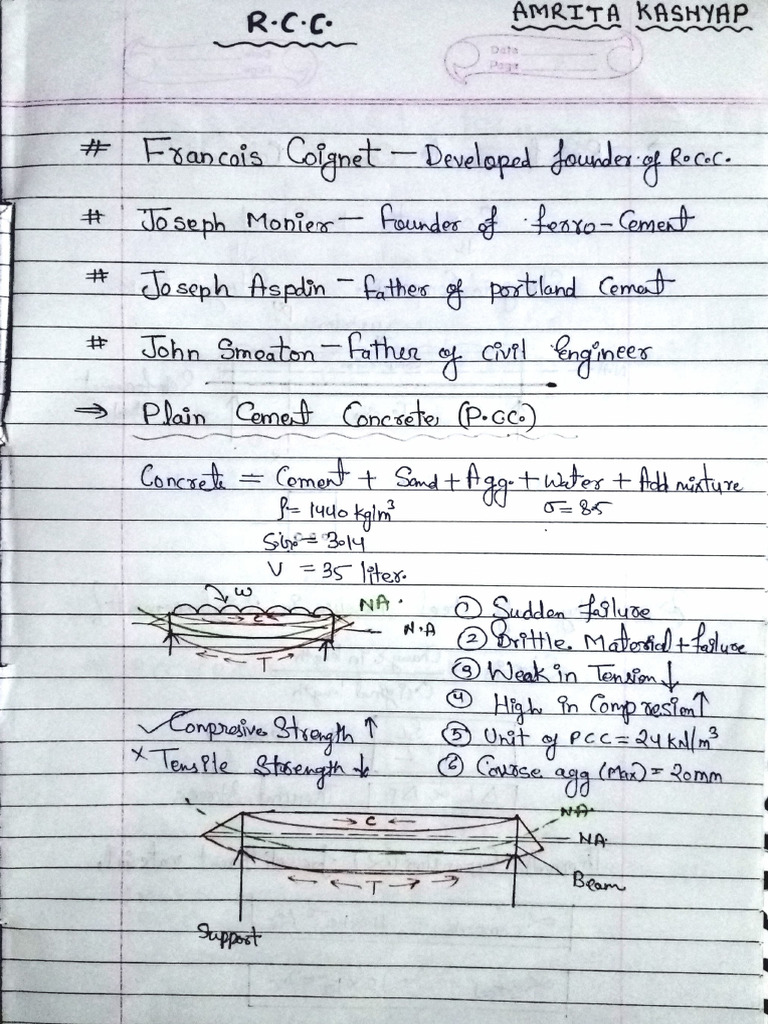 R.C.C.
AMRITA KASHYAP
Data
Page
# Francois Coignet - Developed founder of R.C.C.
# Joseph Monier - founder of ferro-Cement
# Joseph Aspdin - father of portland Cement
# John Smeaton - father of civil Engineer
⇒ Plain Cement Concrete (P.CC.)
Concrete = Cement + Sand + Agg. + Water + Add mixture
ρ = 1440 kg/m³
σ = 8.5
S.G. = 3.14
V = 35 liter.
w
NA.
C
N.A
T
① Sudden failure
② Brittle Material + failure
③ Weak in Tension ↓
④ High in Compresion ↑
✓ Compresive Strength ↑
⑤ Unit of PCC = 24 kN/m³
× Tensile Strength ↓
⑥ Course agg (Max) = 20mm
NA.
→ C ←
NA.
← ← T → →
Beam
Support